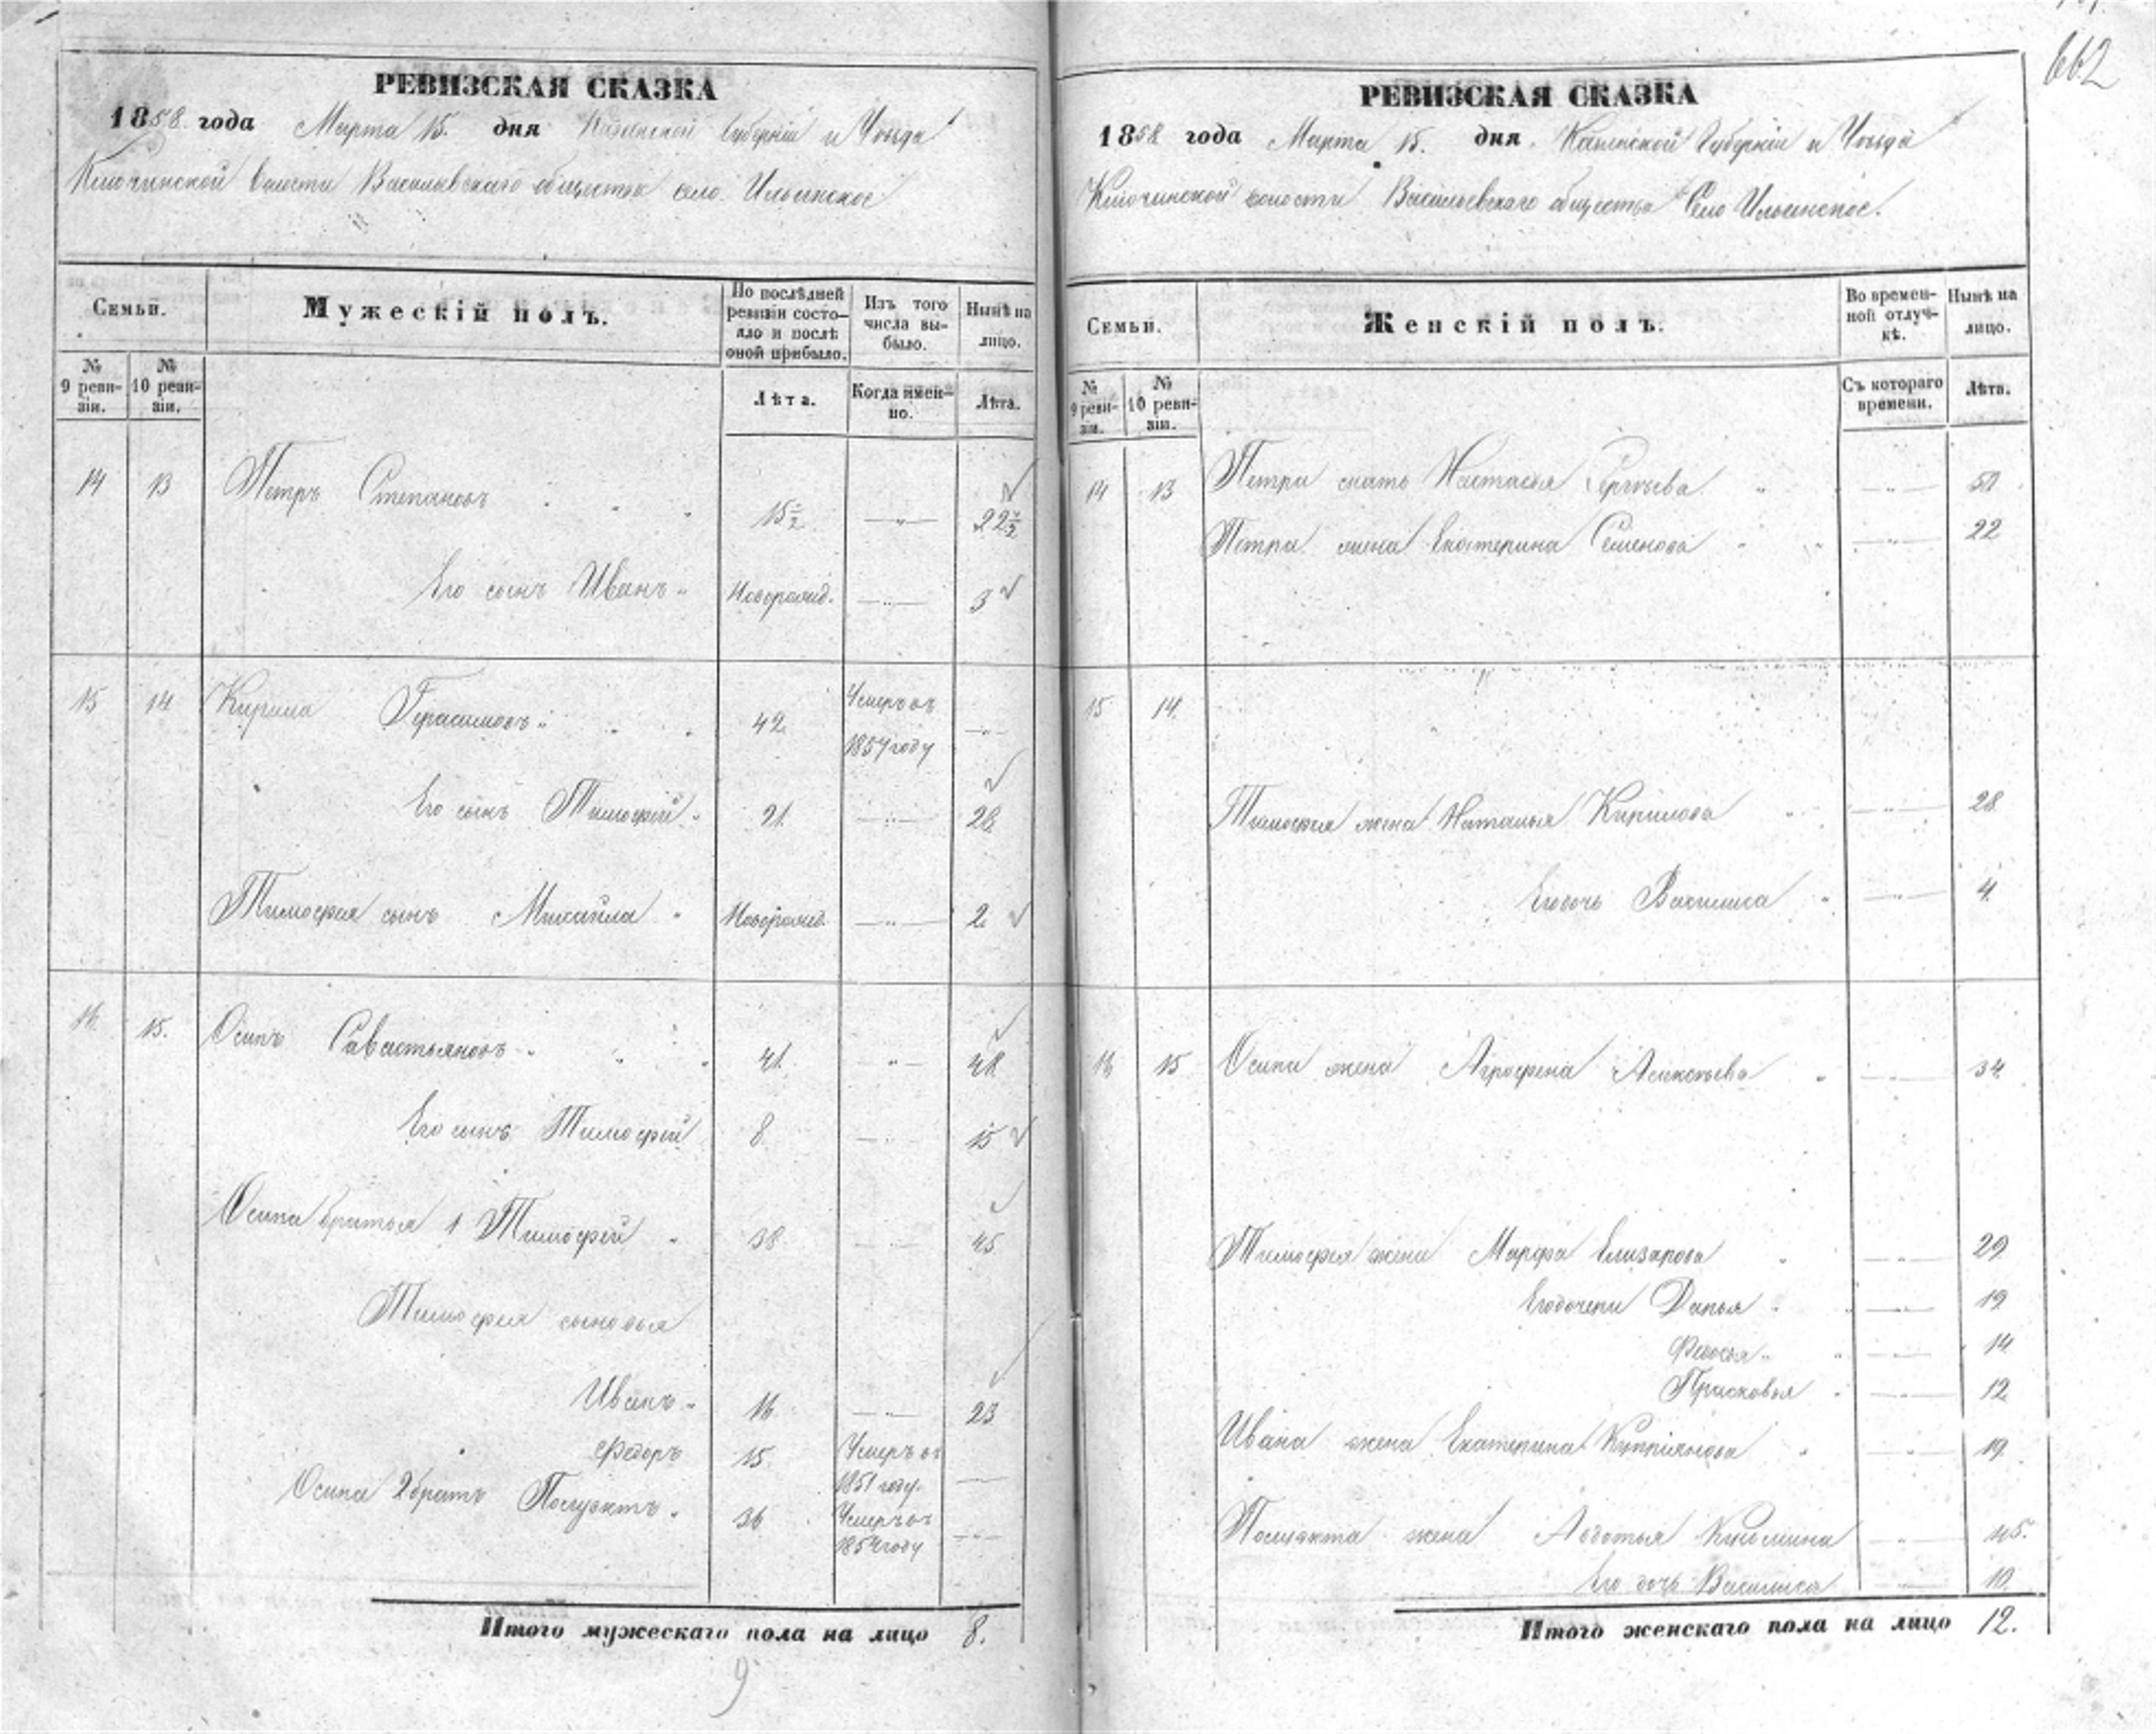 662
РЕВИЗСКАЯ СКАЗКА
1858 года Марта 15. дня Казанской Губерніи и Уѣзда
Ключинской волости Васильевскаго общества село Ильинское
Семьи.
Мужескій полъ.
По послѣдней ревизіи состояло и послѣ оной прибыло.
Изъ того числа выбыло.
Нынѣ на лицо.
№ 9 ревизіи.
№ 10 ревизіи.
Лѣта.
Когда именно.
Лѣта.
14 13 Петръ Степановъ 15½ —"— 22½
Его сынъ Иванъ Новорожд. —"— 3
15 14 Кирила Герасимовъ 42 Умеръ въ 1854 году —"—
Его сынъ Тимофей 21. —"— 28
Тимофея сынъ Михайла Новорожд. —"— 2
16. 15. Осипъ Савастьяновъ 41. —"— 48
Его сынъ Тимофей 8 —"— 15
Осипа братья 1 Тимофей 38 —"— 45
Тимофея сыновья
Иванъ 16 —"— 23
Федоръ 15 Умеръ въ 1851 году. —
Осипа 2 братъ Полуэктъ 36 Умеръ въ 1854 году —"—
Итого мужескаго пола на лицо 8.
9
РЕВИЗСКАЯ СКАЗКА
1858 года Марта 15. дня. Казанской Губерніи и Уѣзда
Ключинской волости Васильевскаго общества Село Ильинское.
Семьи.
Женскій полъ.
Во временной отлучкѣ.
Нынѣ на лицо.
№ 9 ревизіи.
№ 10 ревизіи.
Съ котораго времени.
Лѣта.
14 13 Петра мать Настасья Сергѣева —"—
Петра жена Екатерина Семенова —"— 22
15 14.
Тимофея жена Наталья Кирилова —"— 28
Его дочь Василиса —"— 4
16 15 Осипа жена Агрофена —"— 34
Тимофея жена Марфа Елизарова —"— 29
Его дочери Дарья —"— 19
Федосья —"— 14
Прасковья —"— 12
Ивана жена Екатерина Купріянова " 19
Полуэкта жена Авдотья Кузьмина —"— 45.
Его дочь Василиса —"— 10.
Итого женскаго пола на лицо 12.